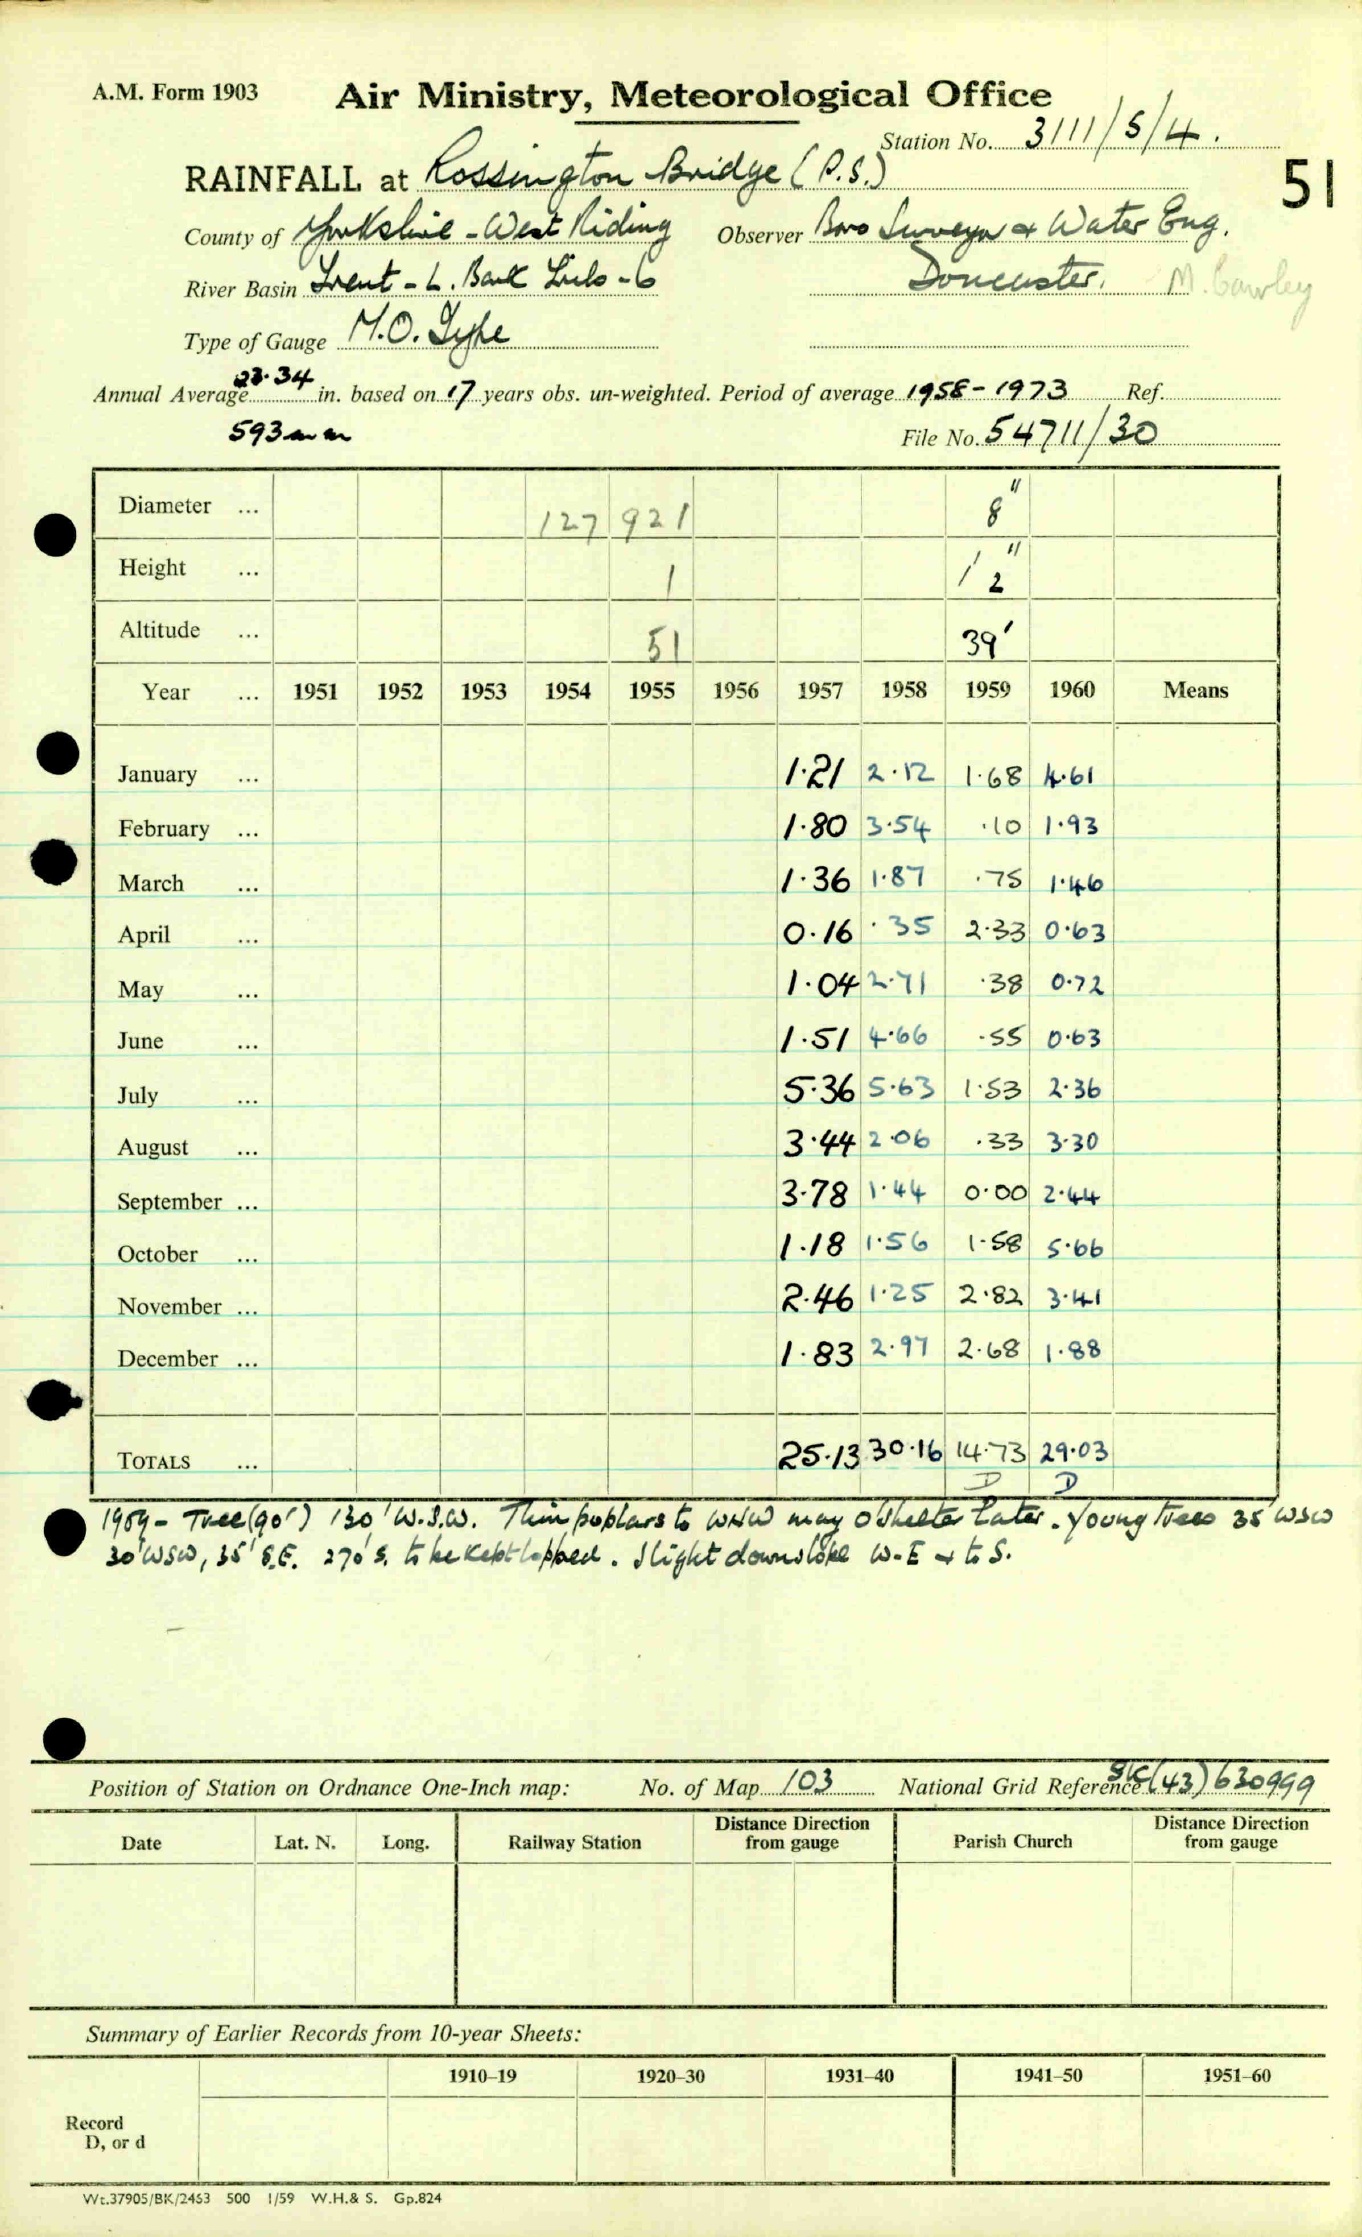 A.M. Form 1903
Air Ministry, Meteorological Office
Station No. 3111/5/4.
RAINFALL at Rossington Bridge (P.S.)
51
County of Yorkshire - West Riding Observer Boro Surveyor & Water Eng.
River Basin Trent - L. Bank Tribs - 6 Doncaster. M. Cawley
Type of Gauge M.O. Type
Annual Average 23.34 in. based on 17 years obs. un-weighted. Period of average 1958-1973 Ref.
593 mm File No. 54711/30
Diameter ... 127 921 8"
Height ... 1 1' 2"
Altitude ... 51 39'
Year ... 1951 1952 1953 1954 1955 1956 1957 1958 1959 1960 Means
January ... 1.21 2.12 1.68 4.61
February ... 1.80 3.54 .10 1.93
March ... 1.36 1.87 .75 1.46
April ... 0.16 .35 2.33 0.63
May ... 1.04 2.71 .38 0.72
June ... 1.51 4.66 .55 0.63
July ... 5.36 5.63 1.53 2.36
August ... 3.44 2.06 .33 3.30
September ... 3.78 1.44 0.00 2.44
October ... 1.18 1.56 1.58 5.66
November ... 2.46 1.25 2.82 3.41
December ... 1.83 2.97 2.68 1.88
TOTALS ... 25.13 30.16 14.73 29.03
D D
Tree (90') 130' W.S.W. Thin poplars to WNW may o'shelter later. Young trees 35' WSW
30' WSW, 35' S.E. 270' S. to be kept lopped. Slight downslope W-E & to S.
Position of Station on Ordnance One-Inch map: No. of Map 103 National Grid Reference SK(43)630999
Date Lat. N. Long. Railway Station Distance Direction from gauge Parish Church Distance Direction from gauge
Summary of Earlier Records from 10-year Sheets:
1910–19 1920–30 1931–40 1941–50 1951–60
Record
D, or d
Wt.37905/BK/2463 500 1/59 W.H.& S. Gp.824